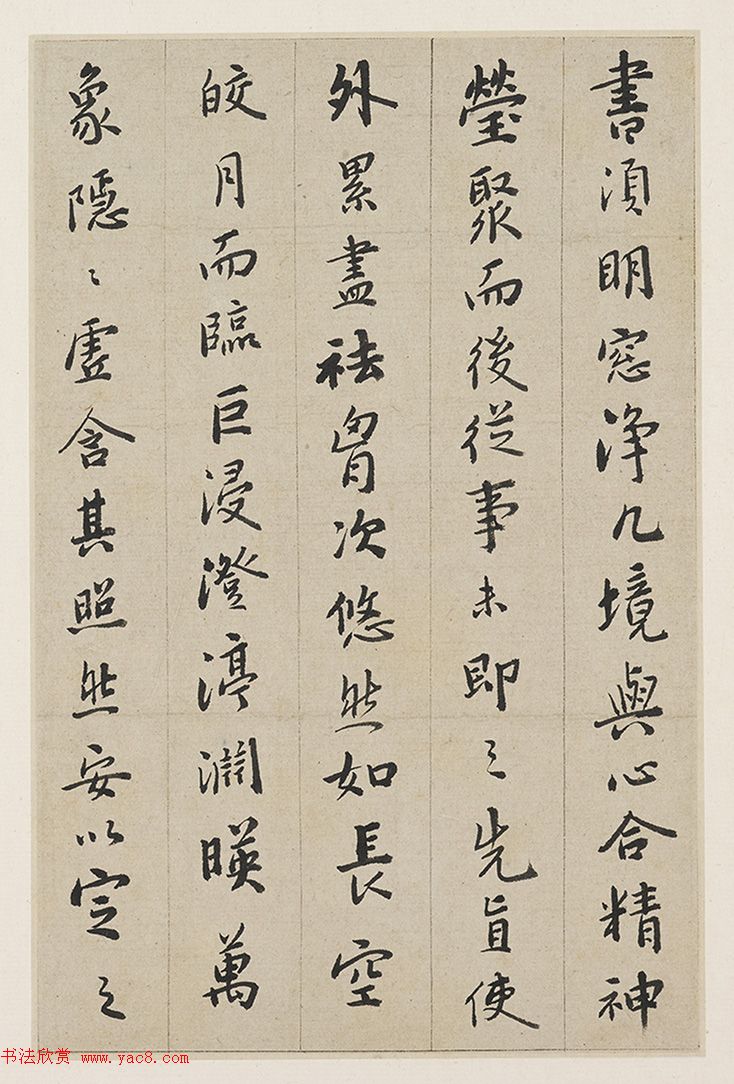 書須明窓浄几境與心合精神
瑩聚而後從事未即之先旨使
外累盡祛胷次悠然如長空
皎月而臨巨浸澄渟淵暎萬
象隱〻虛含其照然安以定之
书法欣赏 www.yac8.com